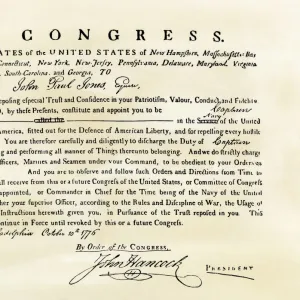 CONGRESS.
ATES of the UNITED STATES of New Hampshire, Massachusetts-Bay
Connecticut, New York, New Jersey, Pennsylvania, Delaware, Maryland, Virginia
South Carolina, and Georgia, TO
John Paul Jones, Esquire,
eposing especial Trust and Confidence in your Patriotism, Valour, Conduct, and Fidelity
by these Presents, constitute and appoint you to be Captain
Navy
in the of the United
America, fitted out for the Defence of American Liberty, and for repelling every hostile
You are therefore carefully and diligently to discharge the Duty of Captain
ng and performing all manner of Things thereunto belonging. And we do strictly charge
Officers, Marines and Seamen under your Command, to be obedient to your Orders as
And you are to observe and follow such Orders and Directions from Time to
ll receive from this or a future Congress of the United States, or Committee of Congress
appointed, or Commander in Chief for the Time being of the Navy of the United
ther your superior Officer, according to the Rules and Discipline of War, the Usage of
Instructions herewith given you, in Pursuance of the Trust reposed in you. This
Continue in Force until revoked by this or a future Congress.
ladelphia October 10th 1776
By Order of the CONGRESS,
John Hancock PRESIDENT